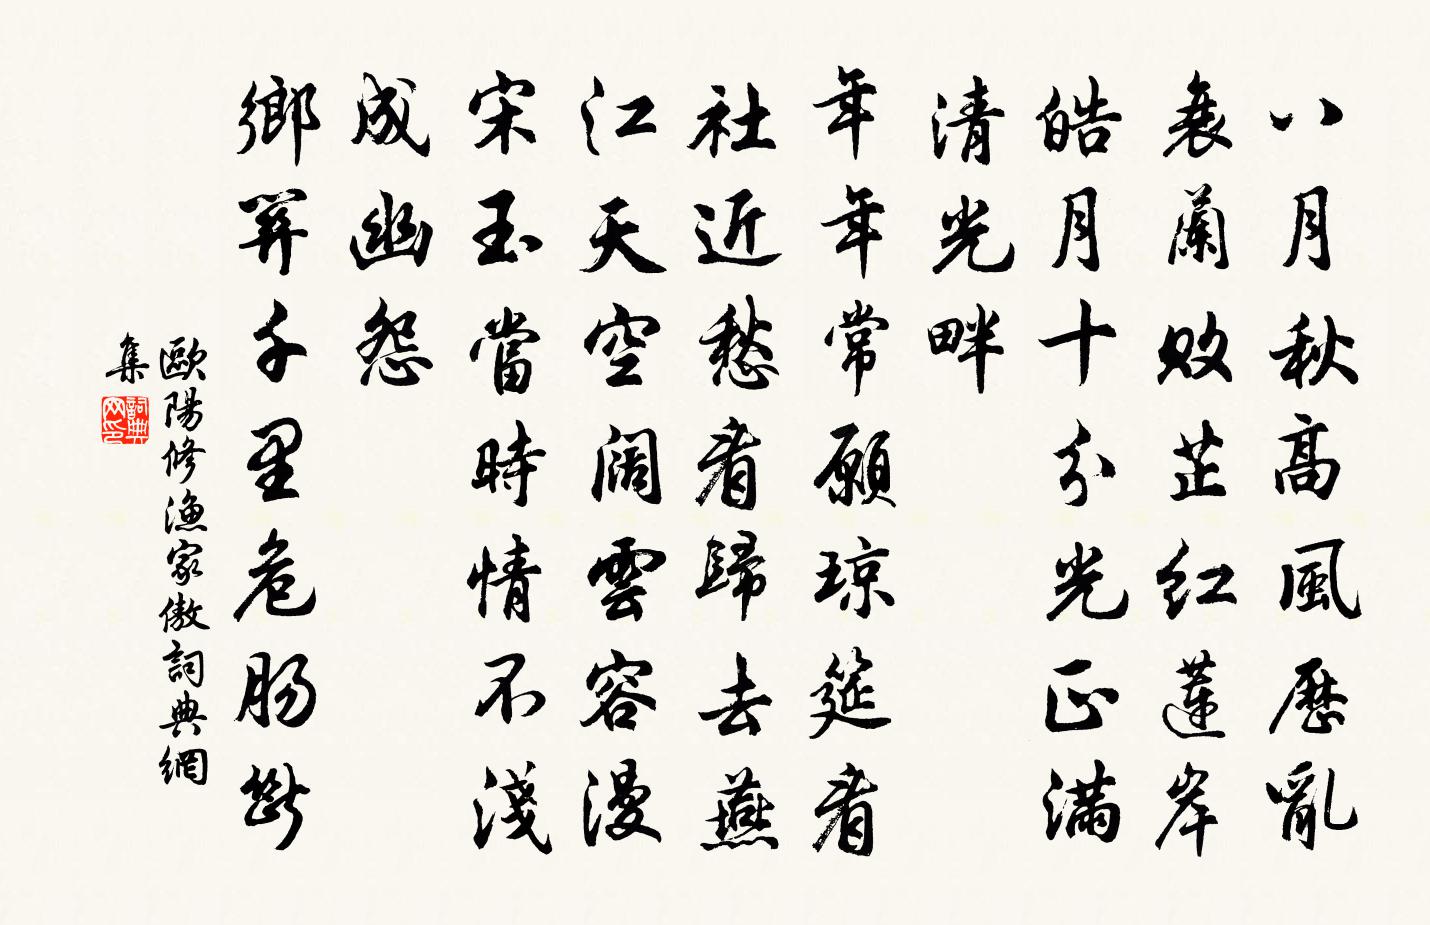 八月秋高風歷亂
衰蘭敗芷紅蓮岸
皓月十分光正滿
清光畔
年年常願瓊筵看
社近愁看歸去燕
江天空闊雲容漫
宋玉當時情不淺
成幽怨
鄉關千里危腸斷
歐陽修漁家傲詞典網
集
詞典網印